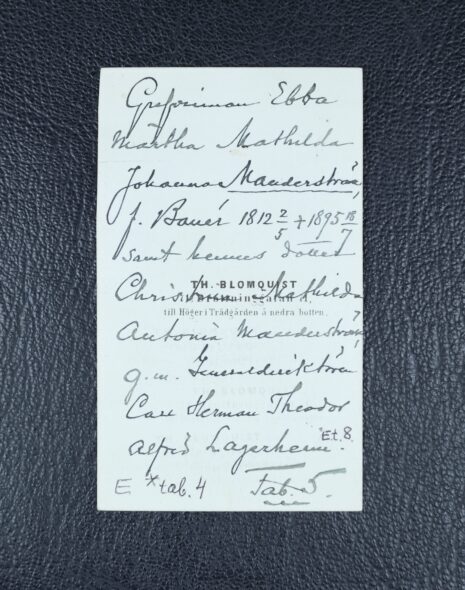 Grefvinnan Ebba
Märtha Mathilda
Johanna Manderström,
f. Banér 1812 2/5 + 1895 18/7
samt hennes dotter
TH. BLOMQUIST
Mathilda
till Höger i Trädgården å nedra botten.
Antonia Manderström
g.m. Generaldirektören
Carl Herman Theodor
Alfred Lagerheim.
Et. 8.
E x tab. 4
Tab. 5.